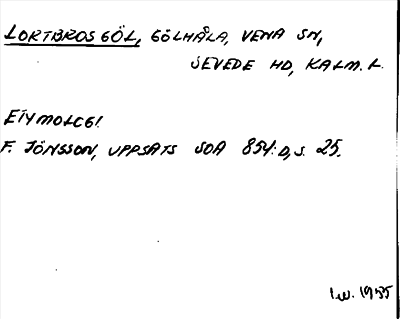 LORTBROS GÖL, GÖLHÅLA, VENA SN,
SEVEDE HD, KALM. L.
ETYMOLOGI
F. JÖNSSON, UPPSATS SOA 854:D, S. 25.
I.W. 1955